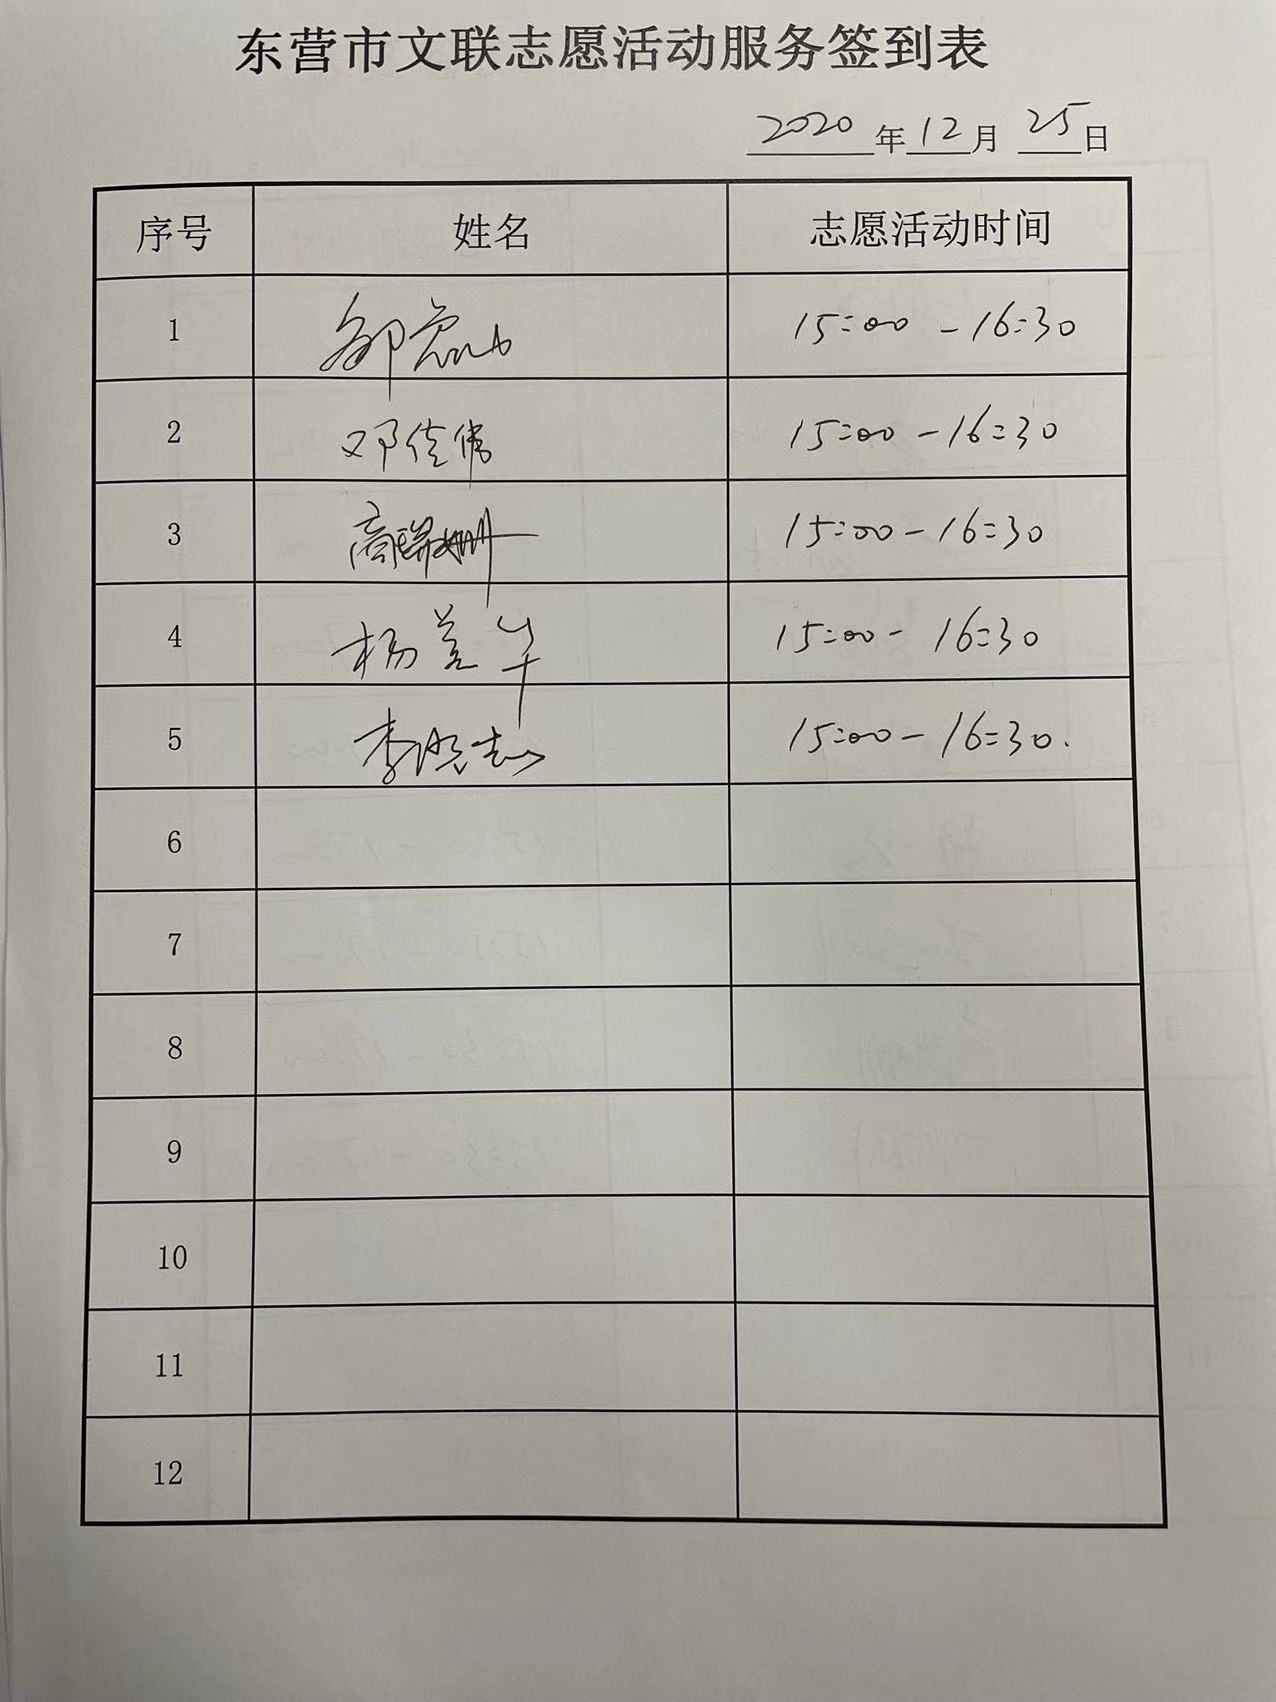 东营市文联志愿活动服务签到表
2020年12月25日
序号 姓名 志愿活动时间
1 15:00-16:30
2 邓佳伟 15:00-16:30
3 高瑞姗 15:00-16:30
4 杨兰华 15:00-16:30
5 李洪志 15:00-16:30.
6
7
8
9
10
11
12